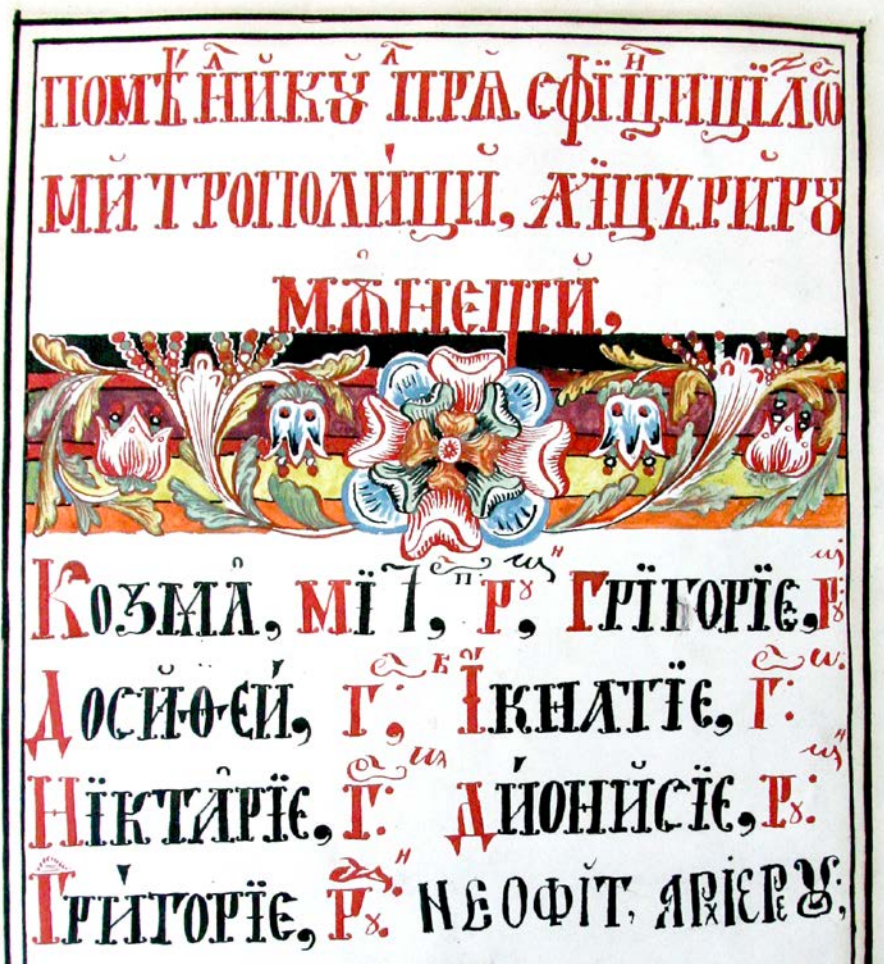 ПОМѢⷧ҇НЙКꙊⷧ҇ ПРѦ СФЇⷩ҇ЦИЦЇЛѠ
МЙТРОПОЛИ́ЦЙ, АЇЦЪРЙРꙊ
МѪНЕЩЙ,
КОЗМА, МЇ, Р, ГРЇГОРЇЕ, Рꙋ:
ДОСЙѲЕЙ, Г, ЇКНАТЇЕ, Г:
НЇКТАРЇЕ, Г: ДИ́ОНЙСЇЕ, Рꙋ:
ГРИ́ГОРЇЕ, Рꙋ: НЕОФІТ. АРХІЕРЕꙊ: